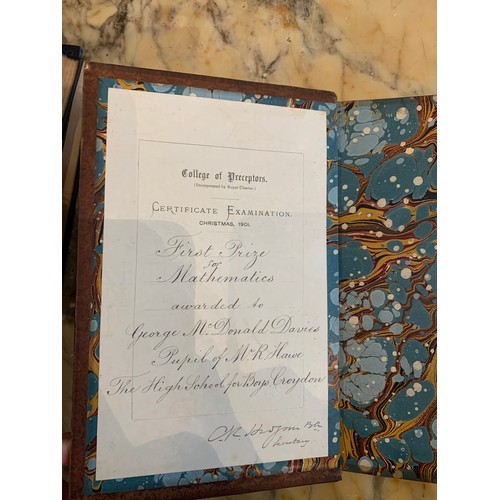 College of Preceptors.
(Incorporated by Royal Charter.)
CERTIFICATE EXAMINATION.
CHRISTMAS, 1901.
First Prize
for
Mathematics
awarded to
George McDonald Davies
Pupil of Mr R. Hawe
The High School for Boys, Croydon
Secretary